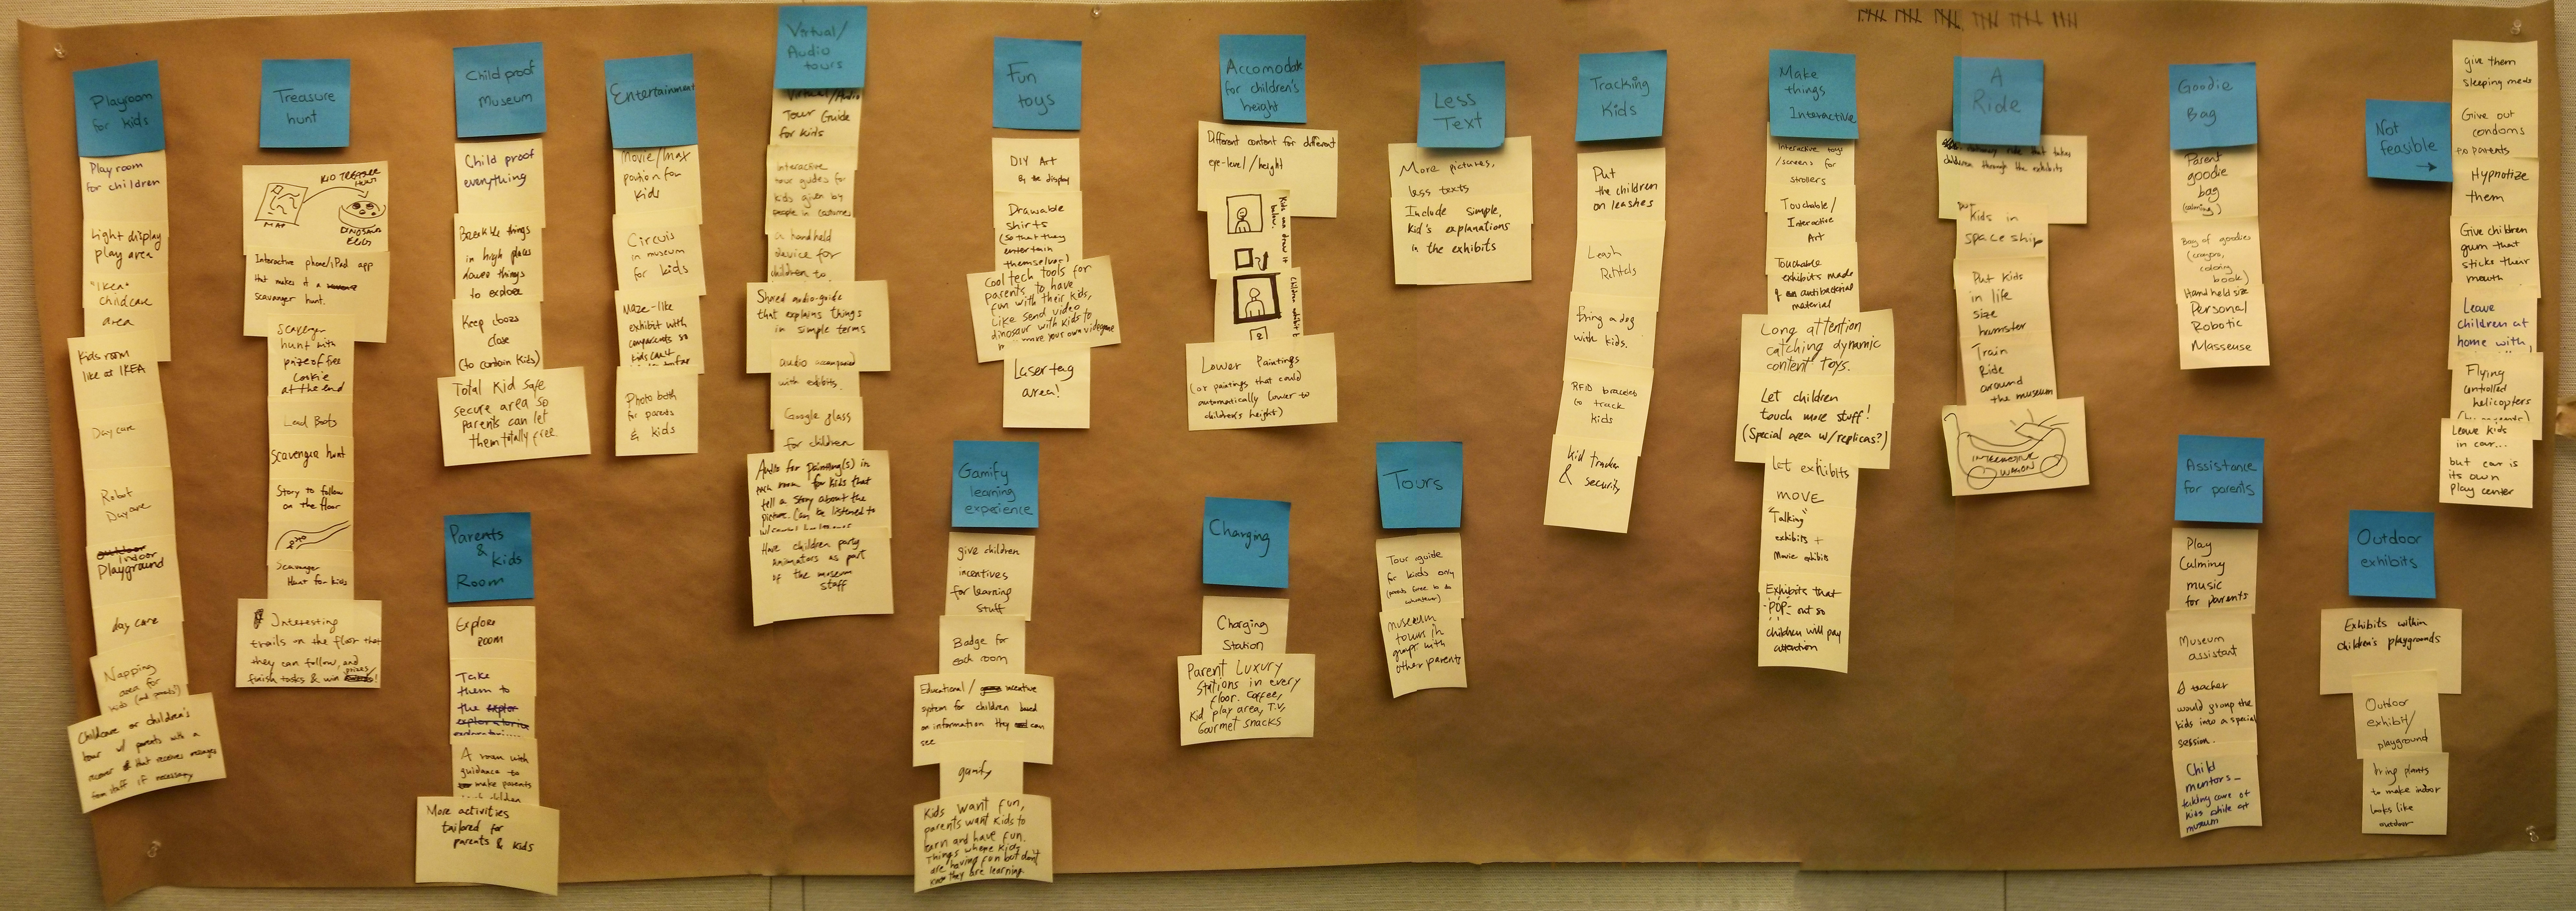 Playroom
for kids
Play room
for children
Light display
play area
"IKEA"
childcare
area
Kids room
like at IKEA
Day care
Robot
Daycare
indoor
Playground
day care
Napping
area for
kids (and parents!)
Childcare or children's
tour w/ parents with a
that receives messages
from staff if necessary
Treasure
hunt
KID TREASURE
HUNT
MAP
DINOSAUR
EGGS
Interactive phone/iPad app
that makes it a
scavenger hunt.
Scavenger
hunt with
prize of free
cookie
at the end
Lead Bots
Scavenger hunt
Story to follow
on the floor
Scavanger
Hunt for kids
Interesting
trails on the floor that
they can follow, and
finish tasks & win prizes!
Child proof
Museum
Child proof
everything
Breakable things
in high places
lower things
to explore
Keep doors
close
(to contain kids)
Total Kid Safe
secure area so
parents can let
them totally free.
Parents
& kids
Room
Explore
room
Take
them to
the
A room with
guidance to
make parents
More activities
tailored for
parents & kids
Entertainment
Movie/Imax
portion for
kids
Circus
in museum
for kids
Maze-like
exhibit with
components so
kids can't
Photo both
for parents
& kids
Virtual/
Audio
tours
Virtual/Audio
Tour Guide
for kids
Interactive
tour guides for
kids given by
people in costumes
a handheld
device for
children to
Shared audio-guide
that explains things
in simple terms
audio accompanied
with exhibits.
Google glass
for children
Audio for painting(s) in
each room for kids that
tell a story about the
picture. Can be listened to
Have children party
animators as part
of the museum
staff
Fun
toys
DIY Art
By the display
Drawable
shirts
(so that they
entertain
themselves)
Cool tech tools for
parents to have
fun with their kids,
like send video
dinosaur with kids to
make your own videogame
Laser tag
area!
Gamify
learning
experience
give children
incentives
for learning
stuff
Badge for
each room
Educational / incentive
system for children based
on information they can
see
gamify
Kids want fun,
parents want kids to
learn and have fun.
Things where kids
are having fun but don't
know they are learning.
Accomodate
for children's
height
Different content for different
eye-level/height
Kids can draw it
below.
Lower Paintings
(or paintings that could
automatically lower to
children's height)
Charging
Charging
Station
Parent Luxury
Stations in every
floor. Coffee,
Kid play area, T.V,
Gourmet snacks
Less
Text
More pictures,
less texts
Include simple,
kid's explanations
in the exhibits
Tours
Tour guide
for kids only
(parents free to do
whatever)
museum
tours in
groups with
other parents
Tracking
Kids
Put
the children
on leashes
Leash
Rentals
Bring a dog
with kids.
RFID bracelets
to track
kids
kid tracker
& security
Make
things
Interactive
Interactive toys
/screens for
strollers
Touchable/
Interactive
Art
Touchable
exhibits made
of antibacterial
material
Long attention
catching dynamic
content toys.
Let children
touch more stuff!
(Special area w/ replicas?)
Let exhibits
MOVE
"Talking"
exhibits +
Movie exhibits
Exhibits that
POP out so
children will pay
attention
A
Ride
ride that takes
children through the exhibits
Put
kids in
space ship
Put kids
in life
size
hamster
Train
Ride
around
the museum
INTERACTIVE
WAGON
Goodie
Bag
Parent
goodie
bag
(calming)
Bag of goodies
(crayons,
coloring
book)
Hand held size
Personal
Robotic
Masseuse
Assistance
for parents
Play
Calming
music
for parents
Museum
assistant
A teacher
would group the
kids into a special
session.
Child
mentors -
taking care of
kids while at
museum
Not
feasible
→
give them
sleeping meds
Give out
condoms
to parents
Hypnotize
them
Give children
gum that
sticks their
mouth
Leave
children at
home with
Flying
controlled
helicopters
Leave kids
in car...
but car is
its own
play center
Outdoor
exhibits
Exhibits within
children's playgrounds
Outdoor
exhibit/
playground
bring plants
to make indoor
looks like
outdoor